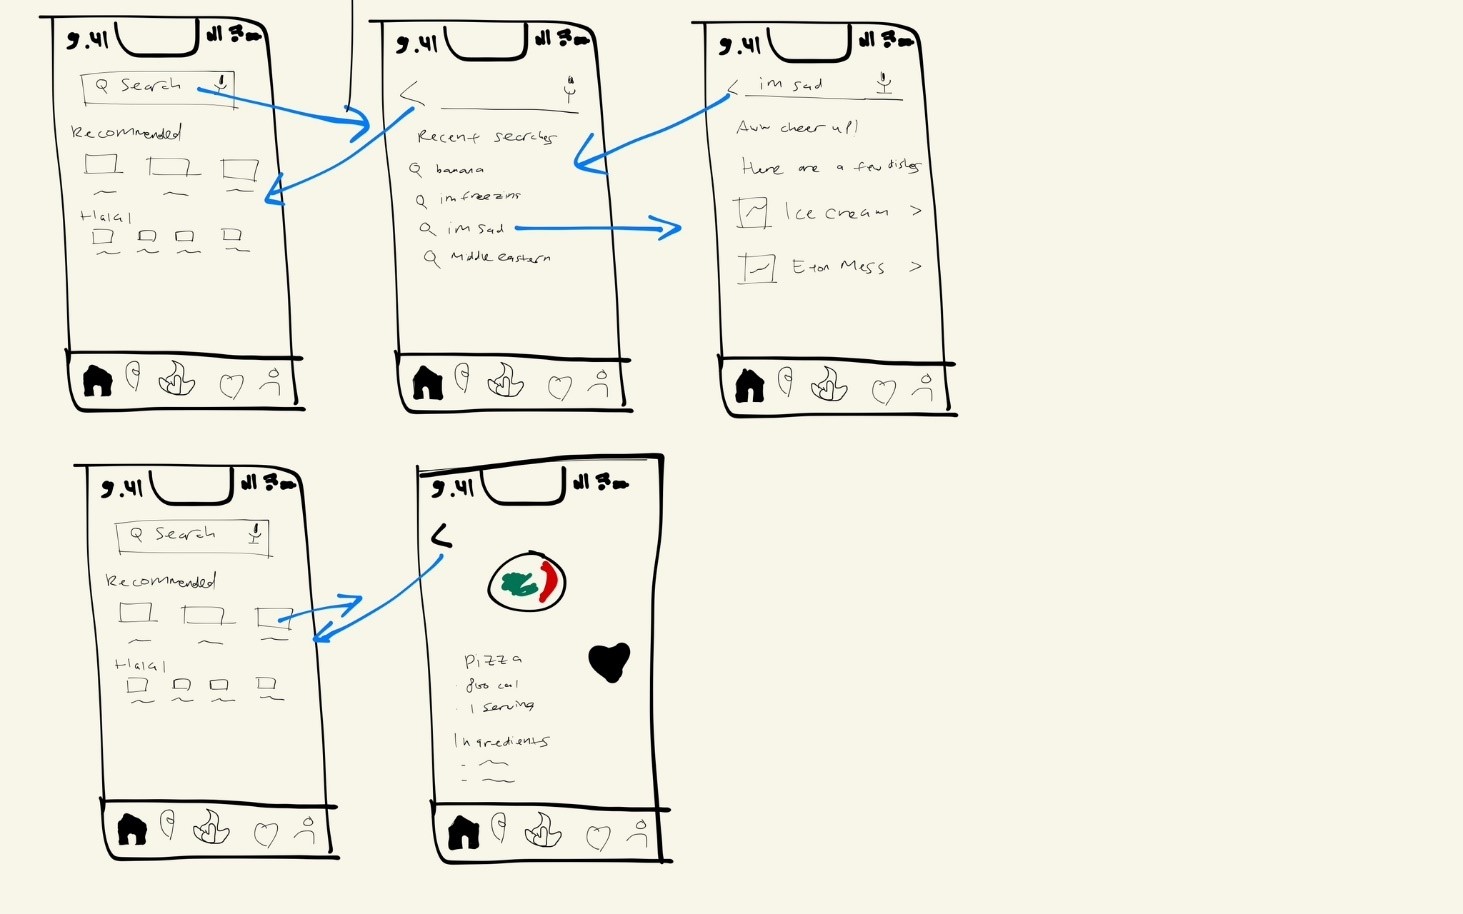 9.41
Search
Recommended
Halal
9.41
Recent searches
banana
im freezing
im sad
Middle eastern
9.41
im sad
Aww cheer up!
Here are a few dishes
Ice cream >
Eton Mess >
9.41
Search
Recommended
Halal
9.41
Pizza
· 800 cal
· 1 serving
Ingredients